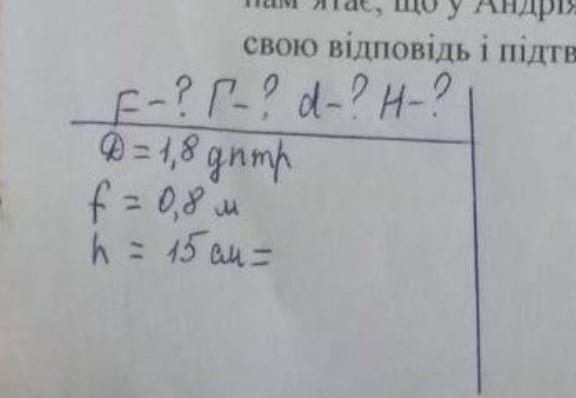 пам'ятає, що у Андрія
свою відповідь і підтв
F-? Г-? d-? H-?
D = 1,8 дптр
f = 0,8 м
h = 15 см =